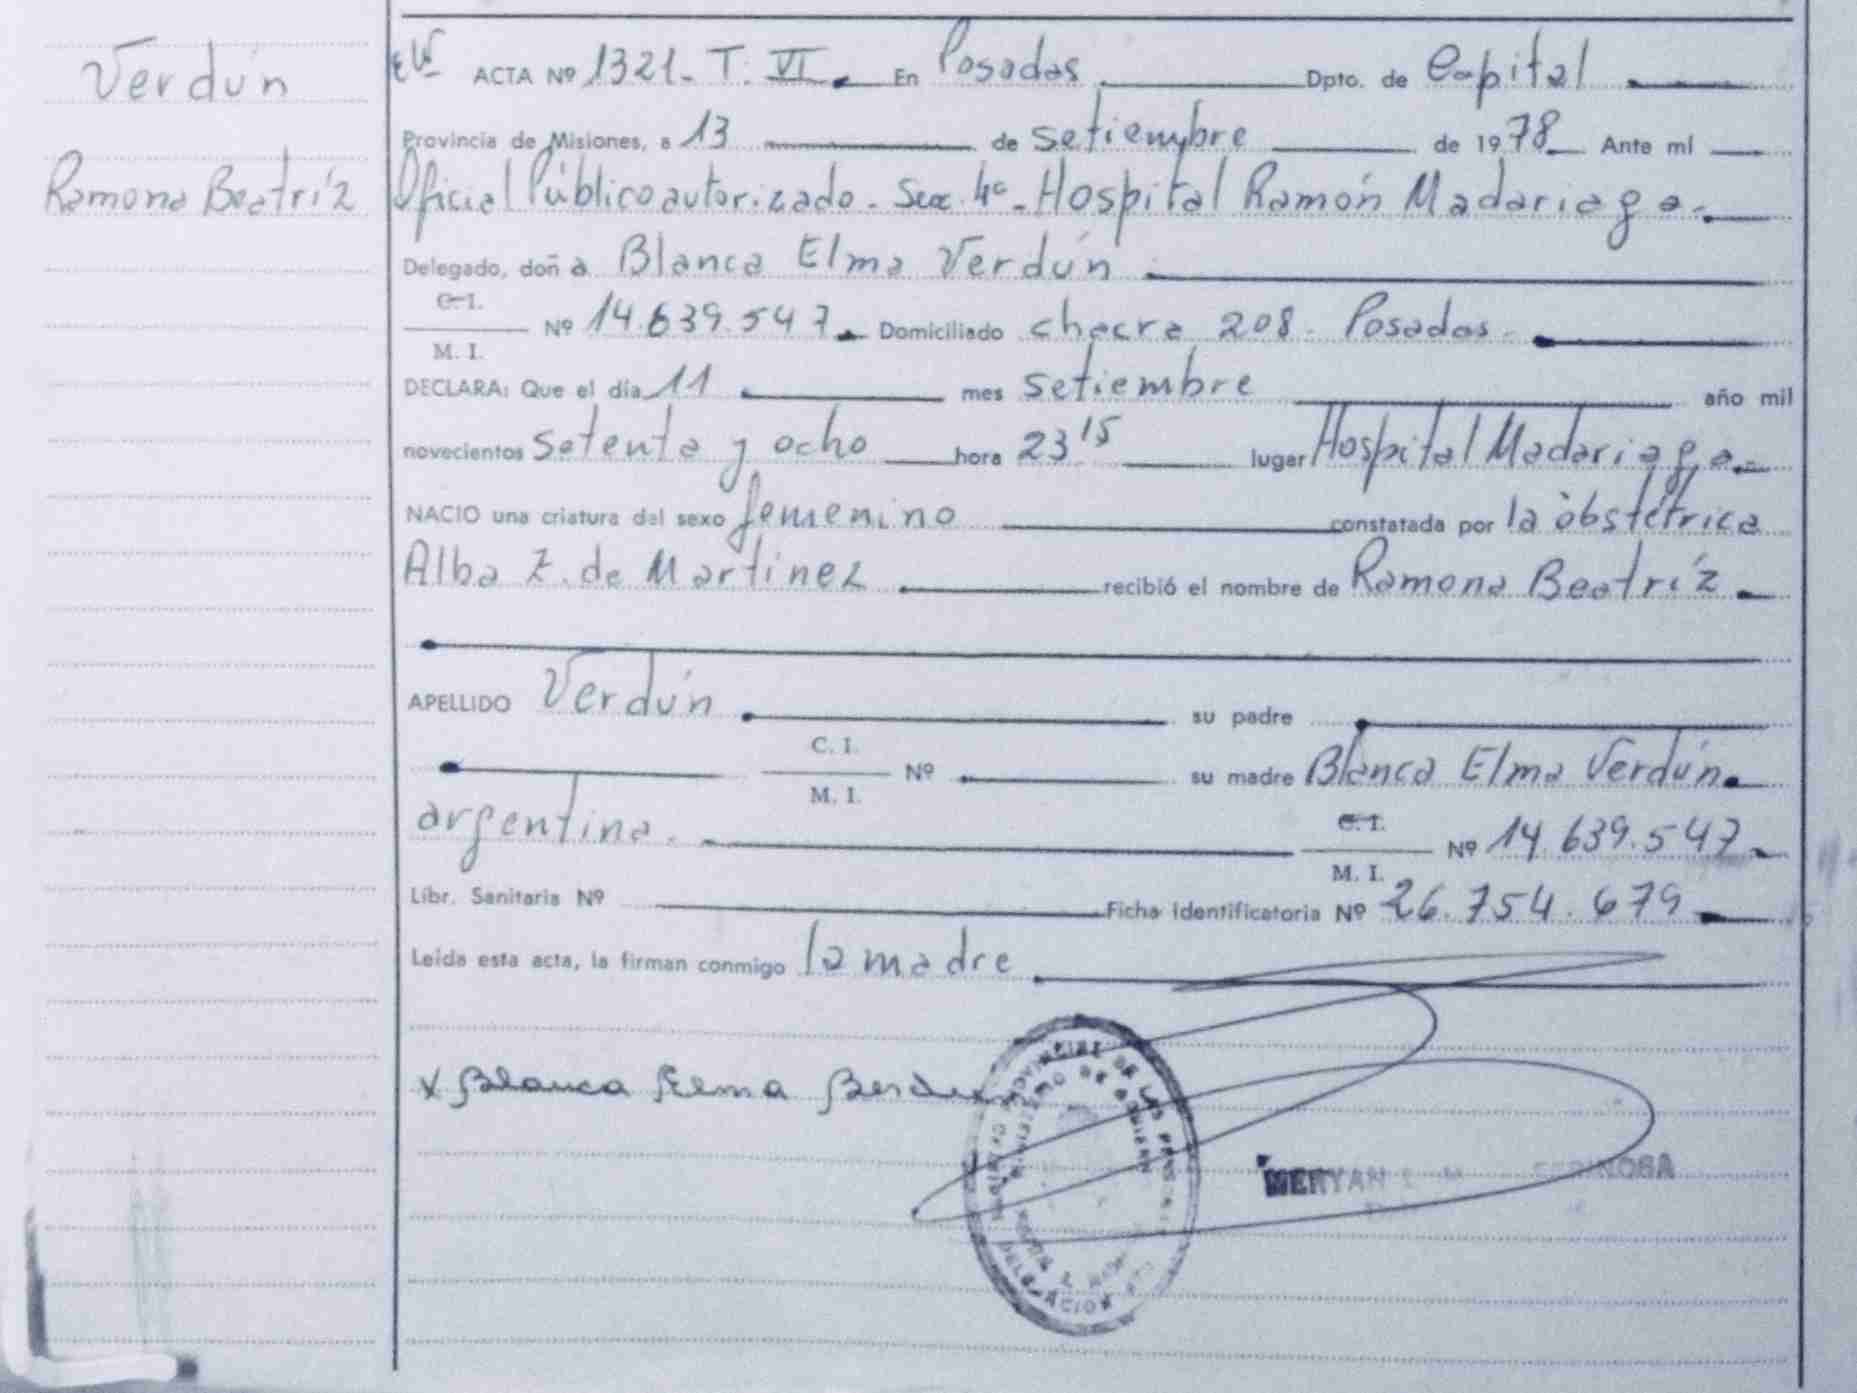 Verdún
Ramona Beatríz
ACTA Nº 1321. T. VI. En Posadas Dpto. de Capital
Provincia de Misiones, a 13 de setiembre de 1978 Ante mí
Oficial Público autorizado. Secc. 4ª. Hospital Ramón Madariaga.
Delegado, doña Blanca Elma Verdún
C. I.
Nº 14.639.547. Domiciliado chacra 208. Posadas.
M. I.
DECLARA: Que el día 11 mes setiembre año mil
novecientos setenta y ocho hora 23 15 lugar Hospital Madariaga.
NACIO una criatura del sexo femenino constatada por la obstétrica
Alba Z. de Martinez recibió el nombre de Ramona Beatríz.
APELLIDO Verdún su padre
C. I.
Nº su madre Blanca Elma Verdún.
M. I.
argentina. C. I.
Nº 14.639.547
M. I.
Libr. Sanitaria Nº Ficha Identificatoria Nº 26.754.679
Leída esta acta, la firman conmigo la madre
x Blanca Elma Berdun
MERYAN ESPINOSA
DELEGACION